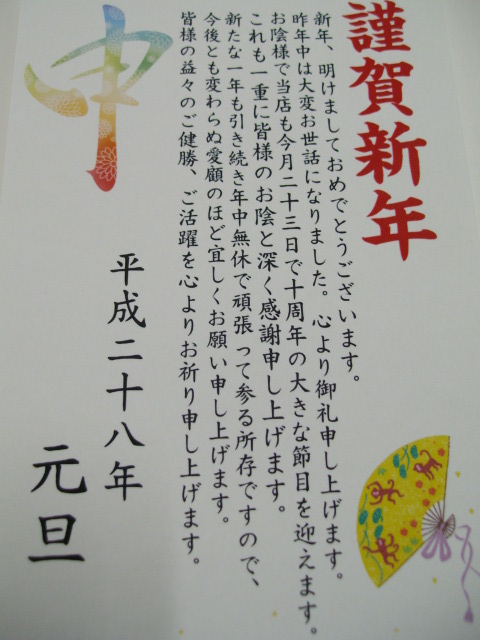 謹賀新年
新年、明けましておめでとうございます。
昨年中は大変お世話になりました。心より御礼申し上げます。
お陰様で当店も今月二十三日で十周年の大きな節目を迎えます。
これも一重に皆様のお陰と深く感謝申し上げます。
新たな一年も引き続き年中無休で頑張って参る所存ですので、
今後とも変わらぬ愛顧のほど宜しくお願い申し上げます。
皆様の益々のご健勝、ご活躍を心よりお祈り申し上げます。
申
平成二十八年
元旦